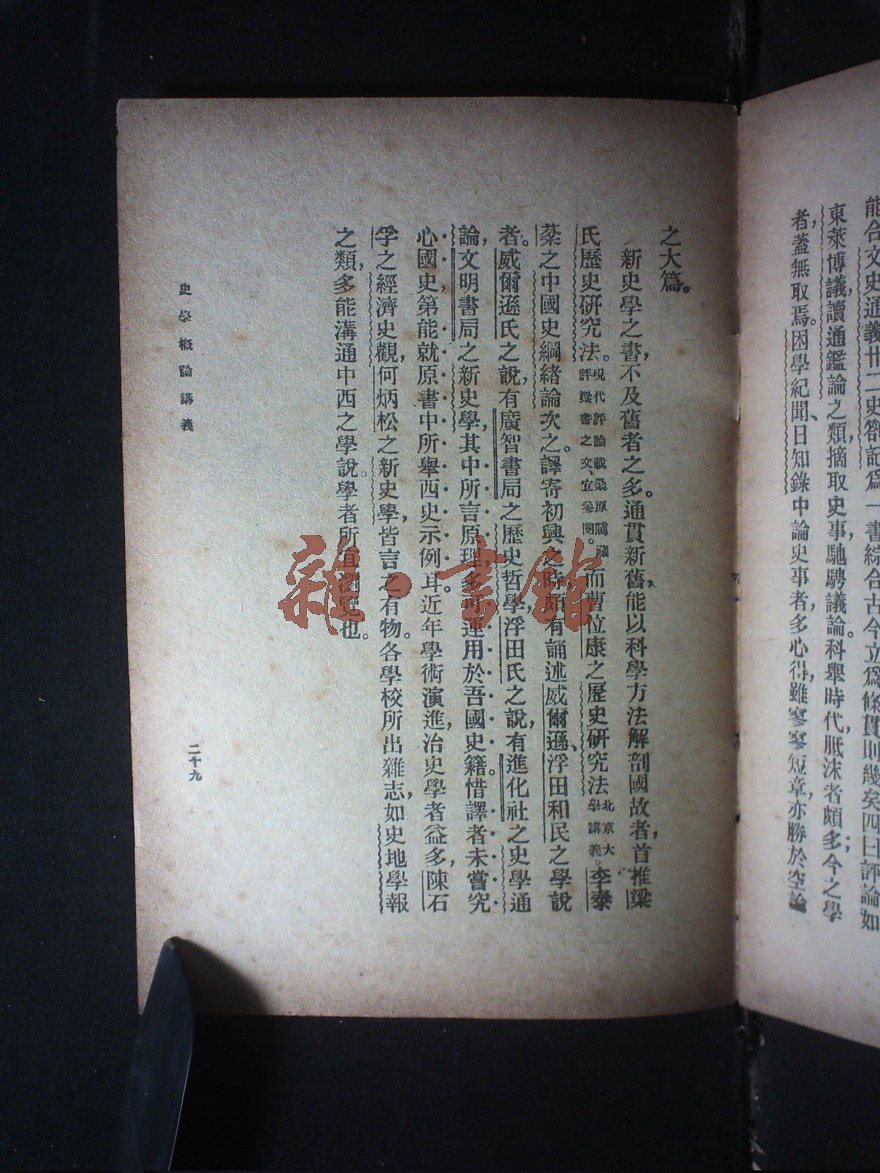 能合文史通義廿二史劄記爲一書綜合古今立爲條貫則幾矣四曰評論如
東萊博議讀通鑑論之類摘取史事馳騁議論。科舉時代胝沫者頗多今之學
者蓋無取焉。困學紀聞、日知錄中論史事者多心得雖寥寥短章亦勝於空論
之大篇。
新史學之書，不及舊者之多。通貫新舊，能以科學方法解剖國故者，首推梁
氏歷史研究法。現代評論載桑原隲藏評梁書之文，宜參閱。而曹位康之歷史研究法北京大學講義。李泰
棻之中國史綱緒論次之。譯寄初興之時，頗有誦述威爾遜、浮田和民之學說
者。威爾遜氏之說，有廣智書局之歷史哲學，浮田氏之說，有進化社之史學通
論，文明書局之新史學，其中所言原理，多可運用於吾國史籍。惜譯者未嘗究
心國史，第能就原書中所舉西史示例耳。近年學術演進，治史學者益多，陳石
孚之經濟史觀，何炳松之新史學，皆言之有物。各學校所出雜志，如史地學報
之類，多能溝通中西之學說，學者所宜瀏覽也。
史學概論講義
二十九
雜·書館